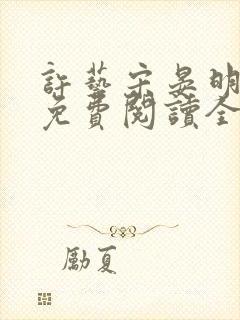 許藝宋晏明
免費閱讀全
勵夏